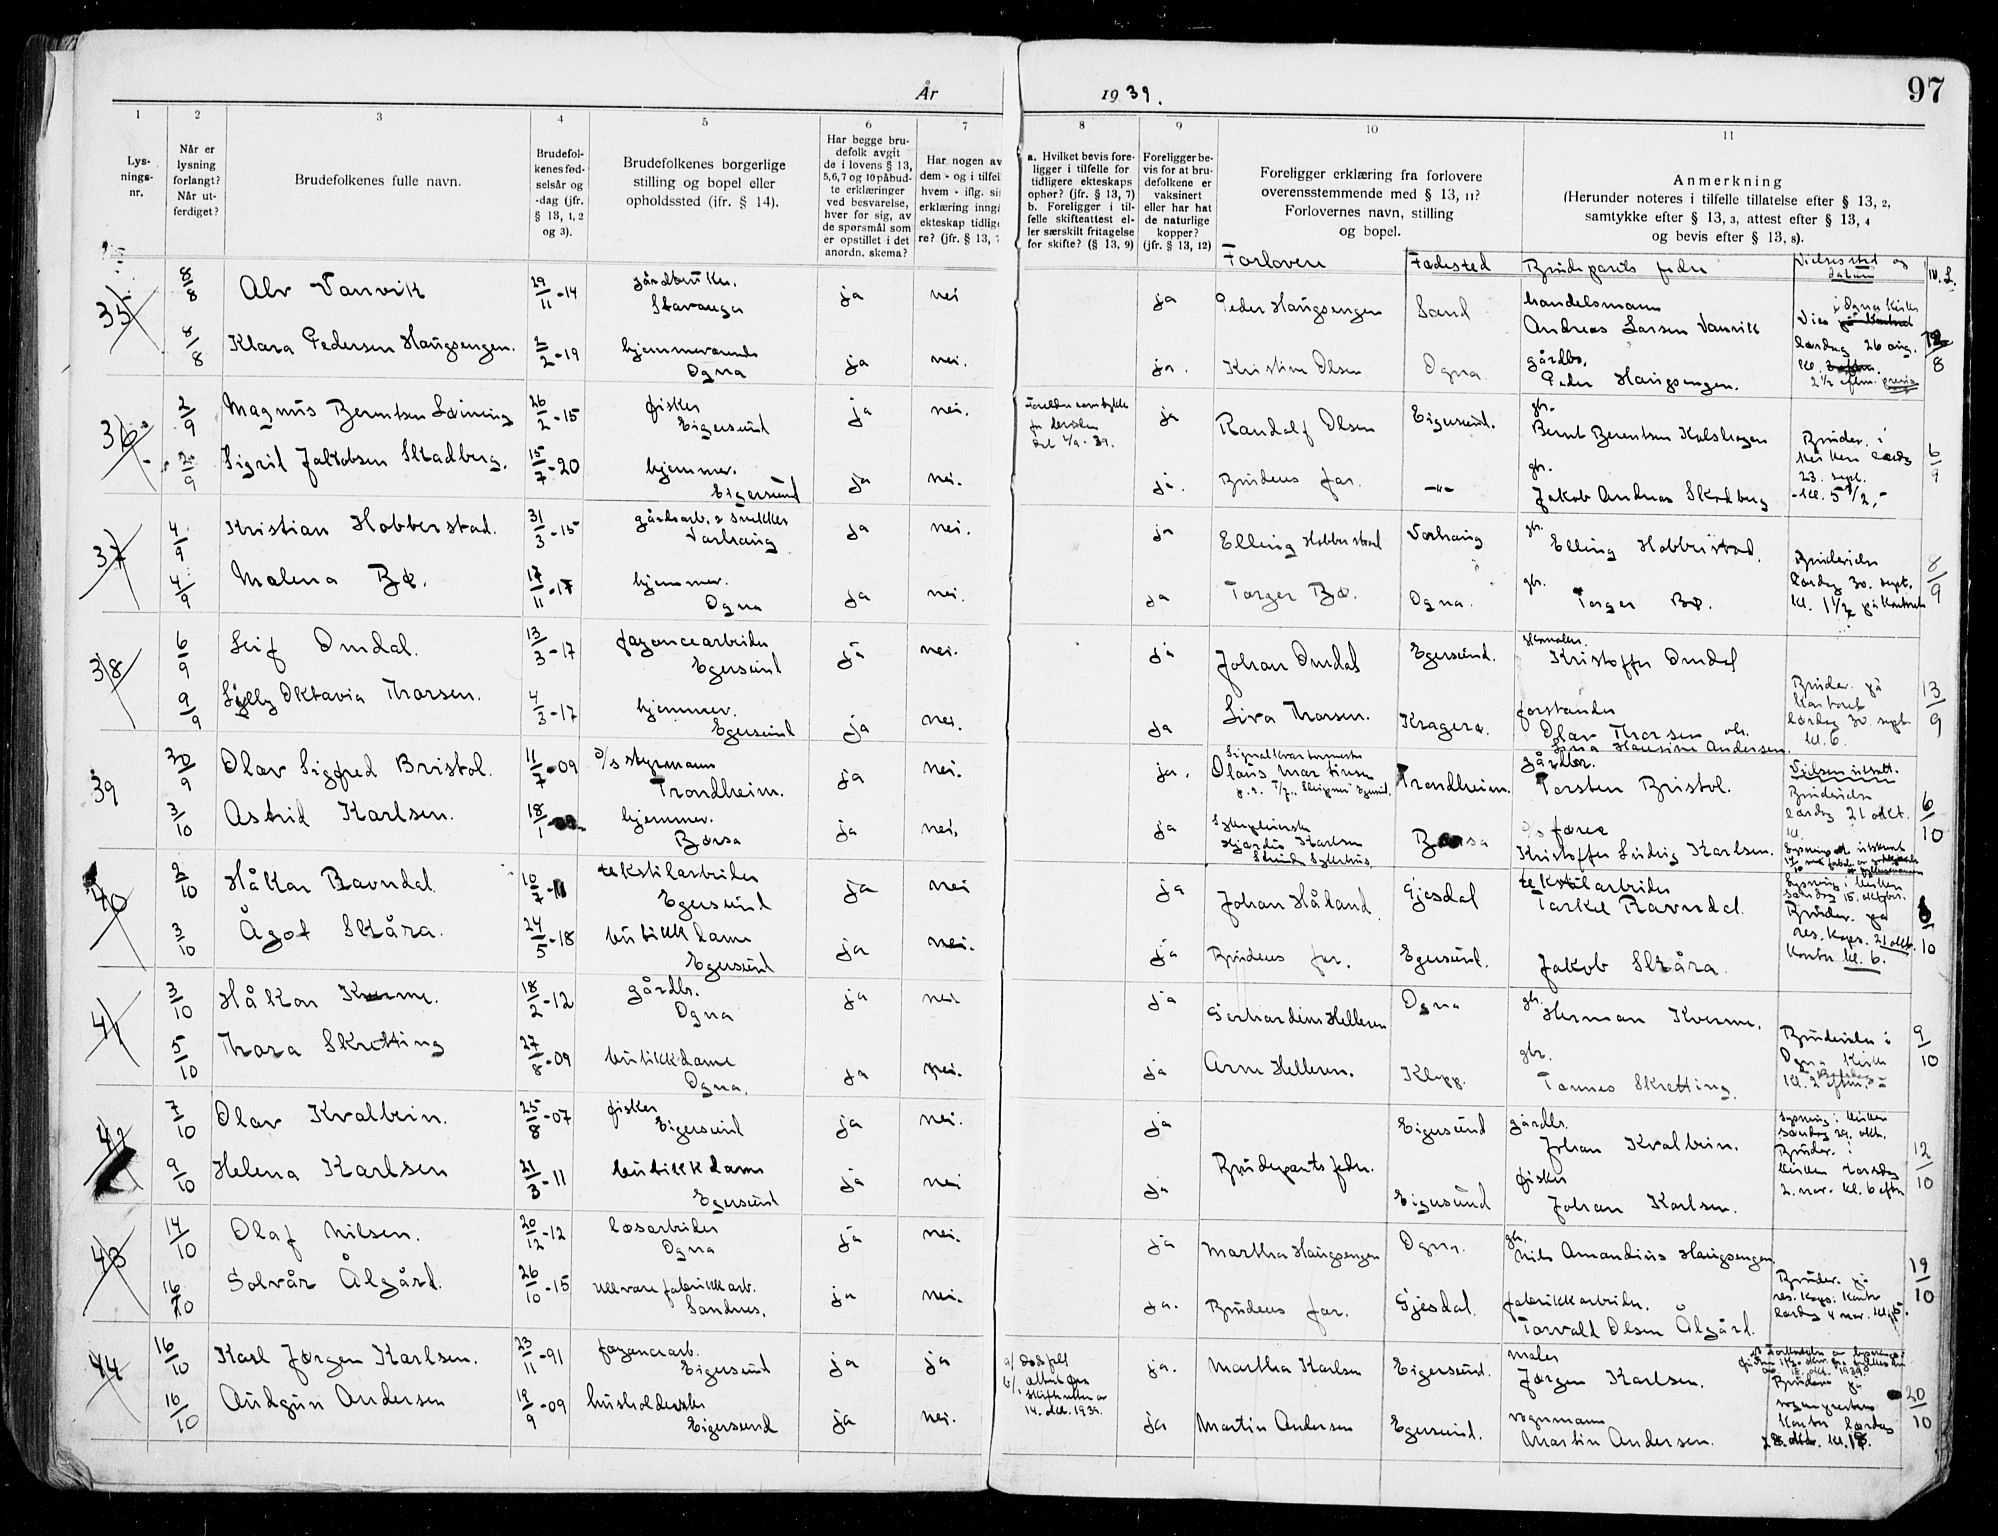 År 1939.
97
1 2 3 4 5 6 7 8 9 10 11
Lysnings-
nr.
Når er
lysning
forlangt?
Når ut-
ferdiget?
Brudefolkenes fulle navn.
Brudefol-
kenes fød-
selsår og
-dag (jfr.
§ 13, 1, 2
og 3).
Brudefolkenes borgerlige
stilling og bopel eller
opholdssted (ifr. § 14).
Har begge bru-
defolk avgit
de i lovens § 13,
5,6,7 og 10 påbud-
te erklæringer
ved besvarelse,
hver for sig, av
de spørsmål som
er opstillet i det
anordn. skema?
Har nogen av
dem - og i tilfel
hvem - iflg. si
erklæring inngå
ekteskap tidlige
re? (jfr. § 13, 7
a. Hvilket bevis fore-
ligger i tilfelle for
tidligere ekteskaps
ophør? (jfr. § 13, 7)
b. Foreligger i til-
felle skifteattest el-
ler særskilt fritagelse
for skifte? (§ 13, 9)
Foreligger be-
vis for at bru-
defolkene er
vaksinert
eller har hat
de naturlige
kopper?
(jfr. § 13, 12)
Foreligger erklæring fra forlovere
overensstemmende med § 13, 11?
Forlovernes navn, stilling
og bopel.
Anmerkning
(Herunder noteres i tilfelle tillatelse efter § 13, 2,
samtykke efter § 13, 3, attest efter § 13, 4
og bevis efter § 13, 8).
Forlovere Fødested Brudeparets fedre Vielsessted og
datum
35 8/8 Alv Vanvik 29/11-14 gårdbruker.
Stavanger ja nei ja Peder Haugsengen Sand handelsmann
Andreas Larsen Vanvik
i Ogna Kirke
8/8 Klara Pedersen Haugsengen. 2/2-19 hjemmeværende
Ogna ja nei. ja. Kristine Olsen Ogna gårdbr.
Peder Haugsengen.
lørdag 26 aug.
2 1/2 eftm. presis
36 2/9 Magnus Berentsen Leining 26/2-15 fisker
Eigersund ja nei. ja Randolf Olsen Eigersund. gbr.
Bernt Berentsen
2/9 Sigrid Jakobsen Skadberg. 15/7-20 hjemmev.
Eigersund ja nei. ja. Brudens far. -"- gbr.
Jakob Andreas Skadberg
Brudev. i
kirken lørdag
23. sept.
kl. 5 1/2,- 6/9
37 4/9 Kristian Hobberstad. 31/3-15 gårdsarb. & snekker
Varhaug ja nei. ja Elling Hobberstad Varhaug gbr.
Elling Hobberstad.
4/9 Malena Bø. 17/11-17 hjemmev.
Ogna ja nei. ja Torger Bø. Ogna. gbr.
Torger Bø.
Brudevielse
lørdag 30. sept.
kl. 1 1/2 på kontoret 8/9
38 6/9 Leif Omdal. 13/3-17 fayancearbeider
Egersund ja nei. ja Johan Omdal Egersund.
Kristoffer Omdal
9/9 Sylly Oktavia Thorsen. 4/3-17 hjemmev.
Egersund ja nei. ja Siva Thorsen. Kragerø. forstander
Olav Thorsen
Andersen.
Brudev. på
kontoret
lørdag 30. sept
kl. 6. 13/9
39 30/9 Olav Sigfred Bristol. 11/7-09 d/s styrmann
Trondheim. ja nei. ja. Olaus Martinsen Trondheim. gårdbr.
Torsten Bristol.
Vielsen utsatt.
3/10 Astrid Karlsen. 18/1 hjemmev.
Børsa ja nei. ja Sykepleierske
Hjørdis Karlsen Børsa
Kristoffer Ludvig Karlsen.
Brudevielse
lørdag 21 okt.
kl. 6/10
40 2/10 Håkon Ravndal 10/7-11 tekstilarbeider
Egersund ja nei ja Johan Håland Gjesdal tekstilarbeider
Torkel Ravndal.
Lysning i kirken
søndag 15. oktober.
3/10 Ågot Skåra. 24/5-18 butikkdame
Egersund ja nei. ja Brudens far. Egersund. Jakob Skåra.
Brudev. på
res. kaps. 21 okt.
kontor kl. 6.
41 3/10 Håkon Kverme. 18/2-12 gårdbr.
Ogna ja nei ja Gerhardine Helleren Ogna gbr.
Herman Kverme.
5/10 Thora Skretting 27/8-09 butikkdame
Ogna. ja nei. ja Arne Helleren. Klepp. gbr.
Tønnes Skretting.
Brudevielse i
Ogna Kirke
kl. 2 eftm. 9/10
42 7/10 Olav Kvalbein. 25/8-07 fisker
Eigersund ja nei. ja Brudeparets fedre. Eigersund gårdbr.
Johan Kvalbein.
Lysning i kirken
søndag 29. okt.
9/10 Helena Karlsen 21/3-11 butikkdame
Egersund ja nei ja Eigersund fisker
Johan Karlsen.
Brudev. i
kirken torsdag
2. nov. kl. 6 eftm 12/10
43 14/10 Olaf Nilsen. 20/12-12 løsarbeider
Ogna ja nei. ja Martha Haugsengen Ogna. gbr.
Nils Amandius Haugsengen
16/10 Solvår Ålgård. 26/10-15 ullvarefabrikkarb.
Sandnes. ja nei. ja. Brudens far. Gjesdal. fabrikkarbeider.
Torvald Olsen Ålgård.
Brudev. på
res. kaps. kontor
lørdag 4 nov. kl. 5. 19/10
44 16/10 Karl Jørgen Karlsen. 23/11-91 fayancearb.
Eigersund ja ja a/ Dødsfall
b/ Attest fra
skifteretten av
14. okt. 1939. ja. Martha Karlsen Eigersund. maler
Jørgen Karlsen.
16/10 Audgun Andersen 19/9-09 husholderske
Eigersund ja nei. ja Martin Andersen Egersund. vognmann
Martin Andersen.
Brudev. på
sogneprestens
kontor lørdag
28. okt. 20/10